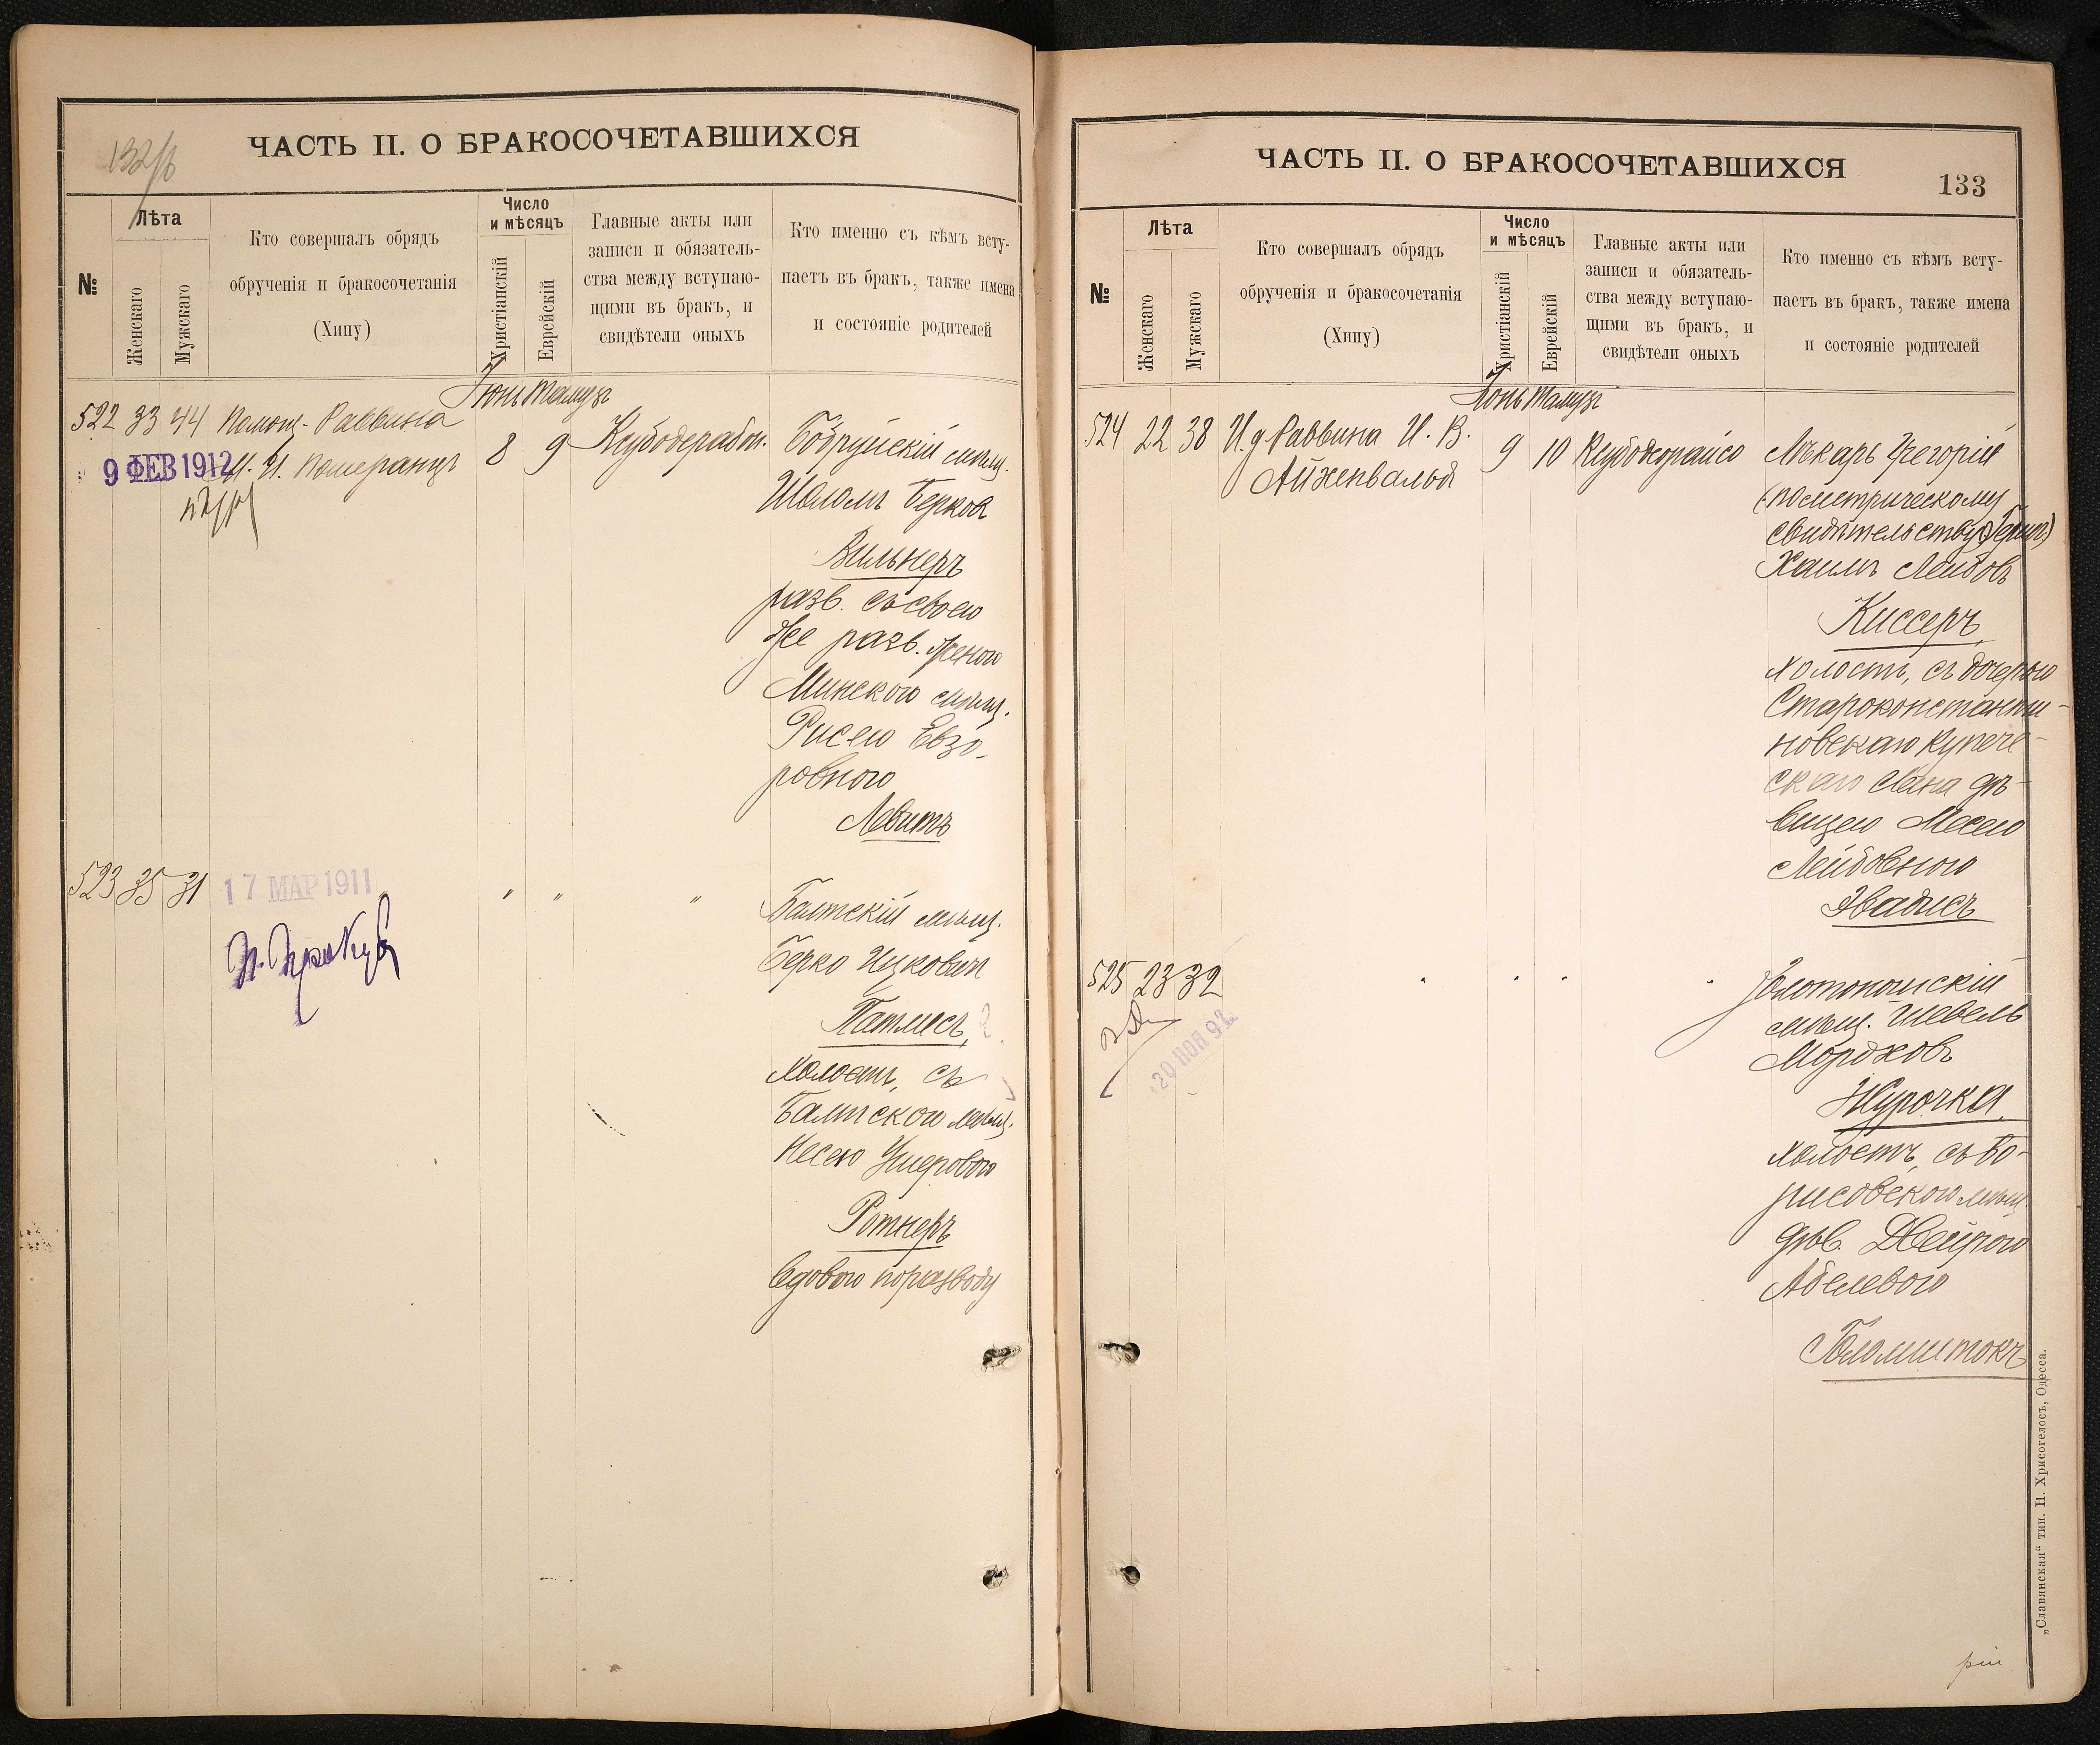 132/б
ЧАСТЬ II. О БРАКОСОЧЕТАВШИХСЯ
№
Лѣта
Женскаго
Мужскаго
Кто совершалъ обрядъ
обрученія и бракосочетанія
(Хипу)
Число
и мѣсяцъ
Христіанскій
Еврейскій
Главные акты или
записи и обязатель-
ства между вступаю-
щими въ бракъ, и
свидѣтели оныхъ
Кто именно съ кѣмъ всту-
паетъ въ бракъ, также имена
и состояніе родителей
Іюнь Тамузъ
522 33 44 Помощ. Раввина
И. Померанцъ
9 ФЕВ 1912
8 9
Бобруйскій мѣщ.
Шоломъ Берков
Вильнеръ
разв. съ своею
же разв. женою
Минскою мѣщ.
Рисею Евзо-
ровною
Левитъ
523 35 31
17 МАР 1911
" " "
Балтскій мѣщ.
Берко Ицкович
Патмесъ,
холостъ, съ
Балтскою мѣщ.
Несею Ушеровою
Ротнеръ
вдовою по разводу
ЧАСТЬ II. О БРАКОСОЧЕТАВШИХСЯ
133
№
Лѣта
Женскаго
Мужскаго
Кто совершалъ обрядъ
обрученія и бракосочетанія
(Хипу)
Число
и мѣсяцъ
Христіанскій
Еврейскій
Главные акты или
записи и обязатель-
ства между вступаю-
щими въ бракъ, и
свидѣтели оныхъ
Кто именно съ кѣмъ всту-
паетъ въ бракъ, также имена
и состояніе родителей
Іюнь Тамузъ
524 22 38 И. д. Раввина И. В.
Айхенвальд
9 10
Лѣкарь Григорій
(по метрическому
свидѣтельству
Хаимъ Лейбовъ
Киссеръ,
холостъ, съ дочерью
Староконстанти-
новскаго купече-
скаго сына дѣ-
вицею
Лейбовною
Эвадисъ
525 23 32
20 НОЯ 92
Золотоношскій
мѣщ. Шевель
Мордховъ
Журочка,
холостъ, съ Бо-
рисовскою мѣщ.
дѣв. Двейрою
Абелевою
Голомштокъ
„Славянская“ тип. Н. Хрисогелосъ, Одесса.